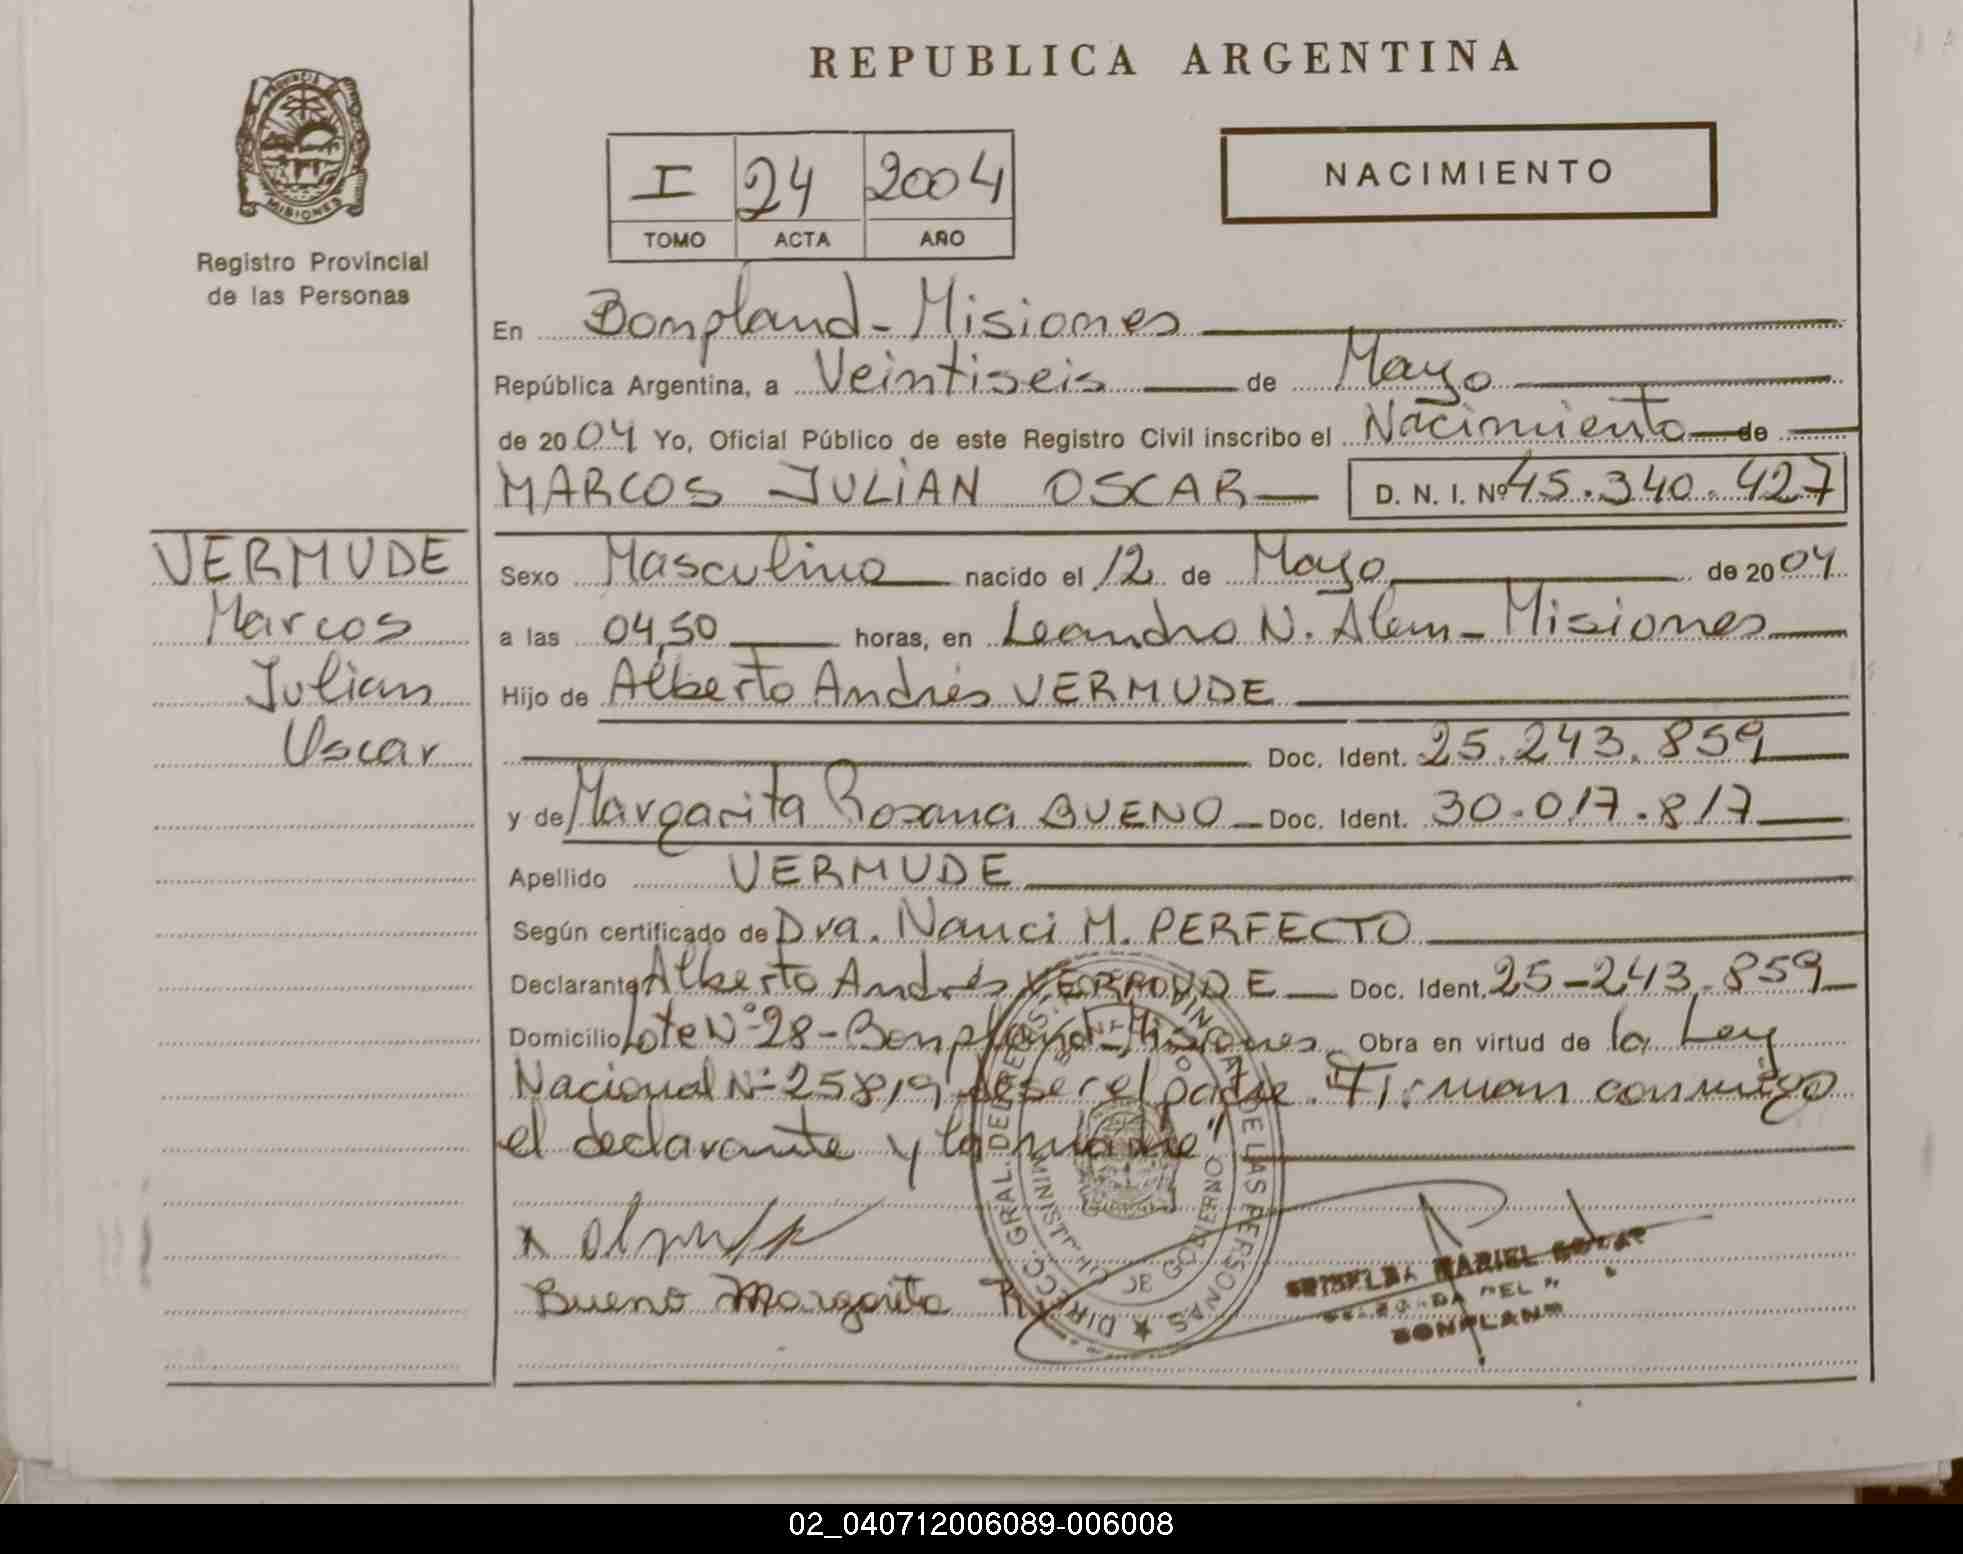 REPUBLICA ARGENTINA
PROVINCIA
MISIONES
Registro Provincial
de las Personas
I 24 2004
TOMO ACTA AÑO
NACIMIENTO
En Bompland - Misiones
República Argentina, a Veintiseis de Mayo
de 2004 Yo, Oficial Público de este Registro Civil inscribo el Nacimiento de
MARCOS JULIAN OSCAR D. N. I. Nº 45.340.427
VERMUDE
Marcos
Julian
Oscar
Sexo Masculino nacido el 12 de Mayo de 2004
a las 04,50 horas, en Leandro N. Alem - Misiones
Hijo de Alberto Andrés VERMUDE
Doc. Ident. 25.243.859
y de Margarita Rosana BUENO Doc. Ident. 30.017.817
Apellido VERMUDE
Según certificado de Dra. Nanci M. PERFECTO
Declarante Alberto Andrés VERMUDE Doc. Ident. 25-243.859
Domicilio Lote Nº 28 - Bonpland - Misiones Obra en virtud de la Ley
Nacional Nº 25819 de ser el padre. "Firman conmigo
el declarante y la madre"
Bueno Margarita R
DIRECC. GRAL. DEL DE LAS PERSONAS
DE GOBIERNO
MARIEL
BONPLAND
02_040712006089-006008